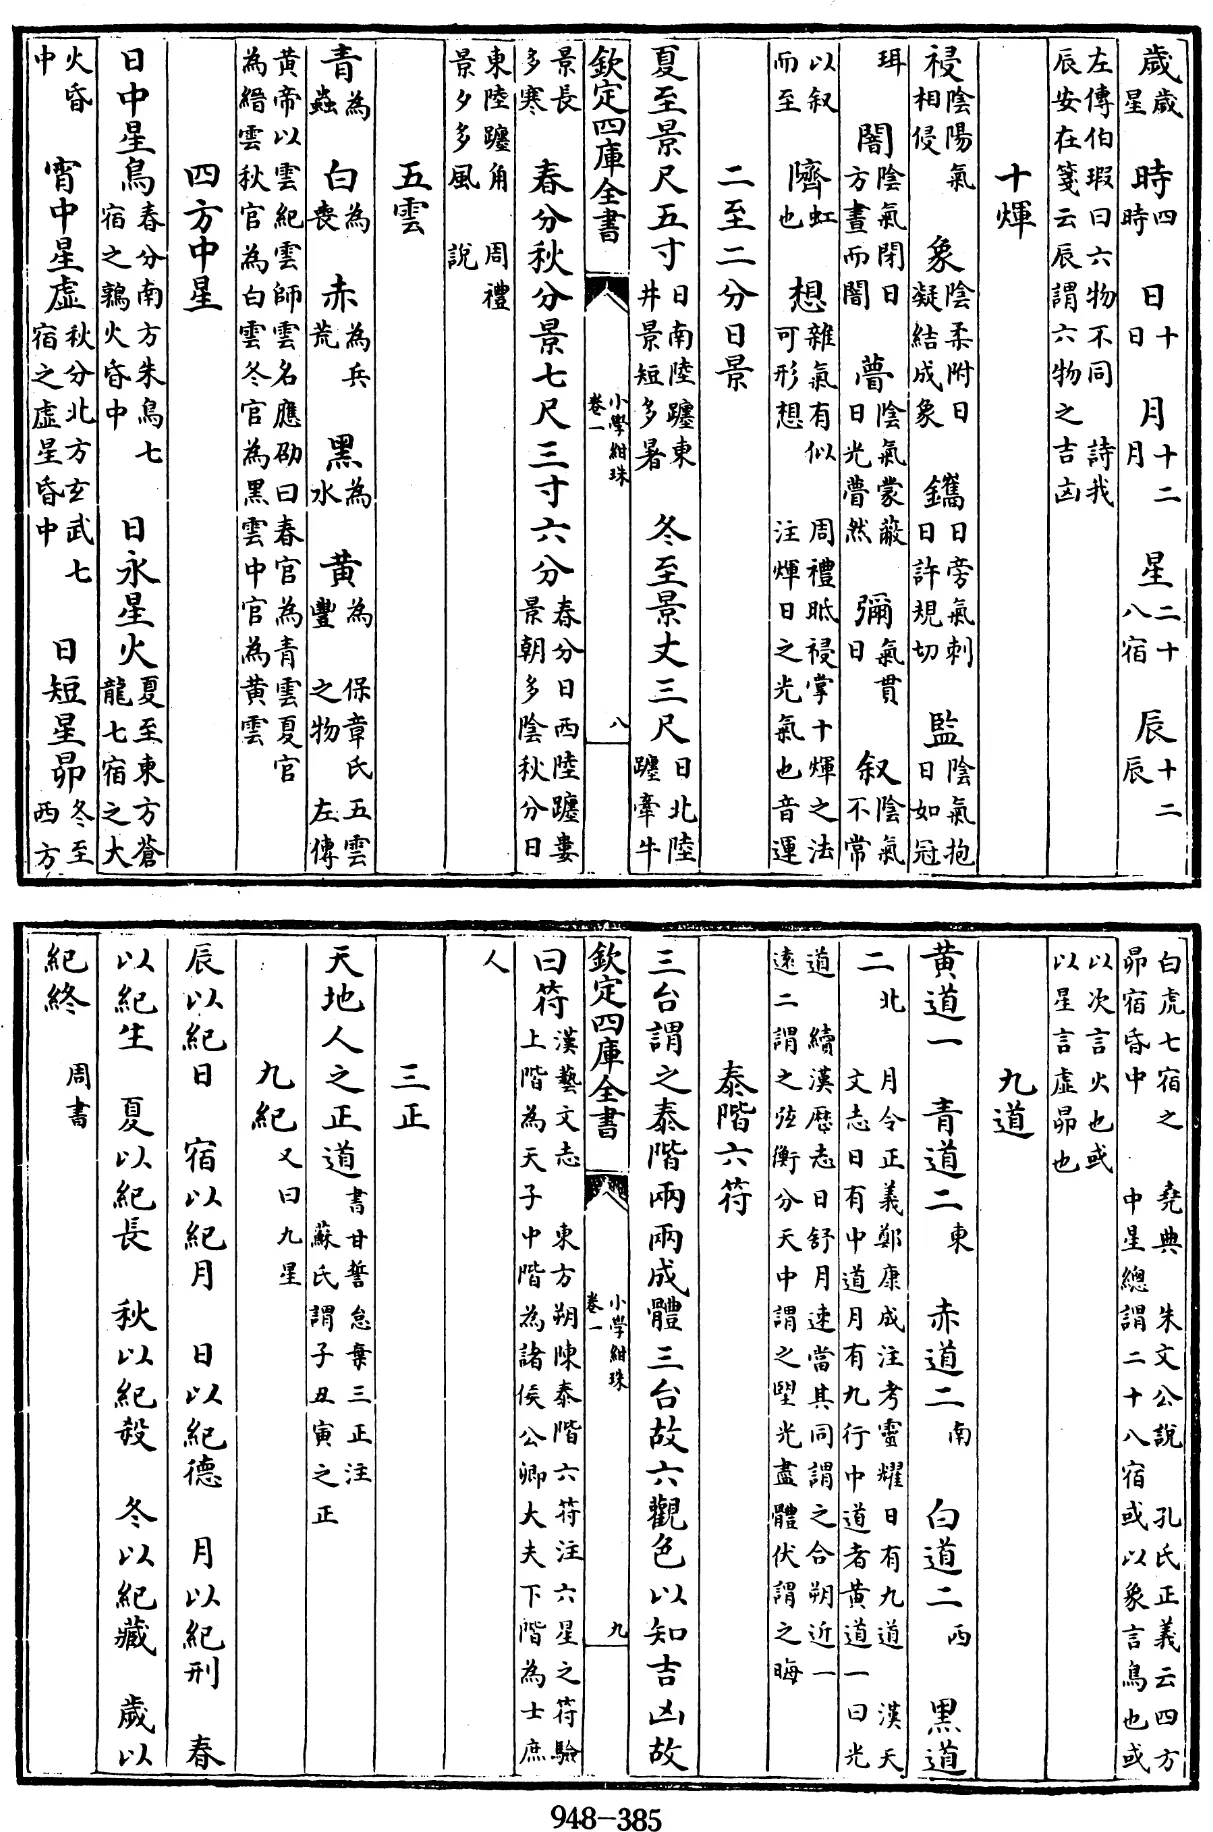 歲歲星 時四時 日十日 月十二月 星二十八宿 辰十二辰
左傳伯瑕曰六物不同 詩我辰安在箋云辰謂六物之吉凶
十煇
祲陰陽氣相侵 象陰柔附日凝結成象 鑴日旁氣刺日許規切 監陰氣抱日如冠
珥 闇陰氣閉日方晝而闇 瞢陰氣蒙蔽日光瞢然 彌氣貫日 叙陰氣不常
以叙而至 隮虹也 想雜氣有似可形想 周禮眡祲掌十煇之法注煇日之光氣也音運
二至二分日景
夏至景尺五寸日南陸躔東井景短多暑 冬至景丈三尺日北陸躔牽牛
欽定四庫全書 小學紺珠 卷一 八
景長多寒 春分秋分景七尺三寸六分春分日西陸躔婁景朝多陰秋分日
東陸躔角景夕多風 周禮說
五雲
青為蟲 白為喪 赤為兵荒 黑為水 黄為豐 保章氏五雲之物 左傳
黄帝以雲紀雲師雲名應劭曰春官為青雲夏官為縉雲秋官為白雲冬官為黑雲中官為黄雲
四方中星
日中星鳥春分南方朱鳥七宿之鶉火昏中 日永星火夏至東方蒼龍七宿之大
火昏中 宵中星虛秋分北方玄武七宿之虛星昏中 日短星昴冬至西方
白虎七宿之昴宿昏中 堯典 朱文公說中星總謂二十八宿或以象言鳥也或 孔氏正義云四方
以次言火也或以星言虛昴也
九道
黄道一 青道二東 赤道二南 白道二西 黒道
二北 月令正義鄭康成注考靈耀日有九道 漢天文志日有中道月有九行中道者黄道一曰光
道 續漢歷志日舒月速當其同謂之合朔近一遠二謂之弦衡分天中謂之望光盡體伏謂之晦
泰階六符
三台謂之泰階兩兩成體三台故六觀色以知吉凶故
曰符漢藝文志 東方朔陳泰階六符注六星之符驗上階為天子中階為諸侯公卿大夫下階為士庶
人
欽定四庫全書 小學紺珠 卷一 九
三正
天地人之正道書甘誓怠棄三正注 蘇氏謂子丑寅之正
九紀又曰九星
辰以紀日 宿以紀月 日以紀德 月以紀刑 春
以紀生 夏以紀長 秋以紀殺 冬以紀藏 歲以
紀終 周書
948-385